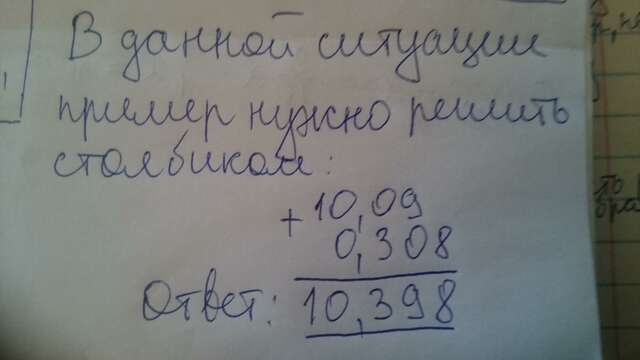 В данной ситуации
пример нужно решить
столбиком:
+10,09
0,308
Ответ: 10,398